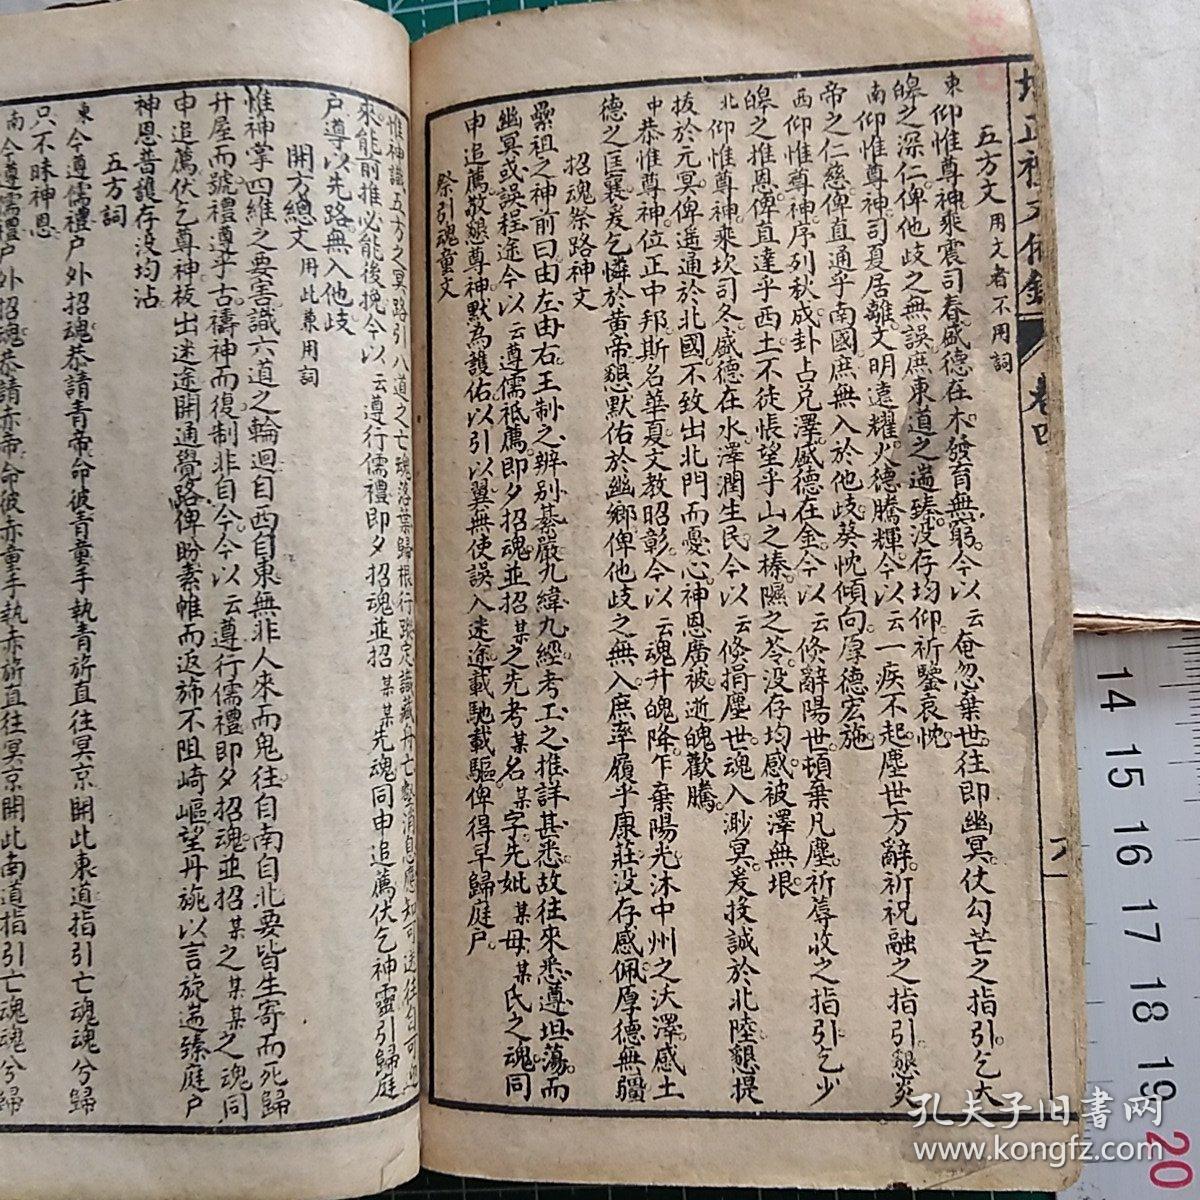 增正禮文備錄 卷四
五方文用文者不用詞
東 仰惟尊神乘震司春盛德在木發育無窮今以云奄忽棄世往即幽冥伏勾芒之指引乞大
皞之深仁俾他歧之無誤庶東道之遄臻没存均仰祈鑒哀忱
南 仰惟尊神司夏居離文明遠耀火德騰輝今以云一疾不起塵世方辭祈祝融之指引懇炎
帝之仁慈俾直通乎南國庶無入於他歧葵忱傾向厚德宏施
西 仰惟尊神序列秋成卦占兌澤盛德在金今以云倏辭陽世頓棄凡塵祈蓐收之指引乞少
皞之推恩俾直達乎西土不徒悵望乎山之榛隰之苓没存均感被澤無垠
北 仰惟尊神乘坎司冬盛德在水澤潤生民今以云倏捐塵世魂入渺冥爰投誠於北陸懇提
拔於元冥俾遥通於北國不致出北門而憂心神恩廣被逝魄歡騰
中 恭惟尊神位正中邦斯名華夏文教昭彰今以云魂升魄降乍棄陽光沐中州之沃澤感土
德之匡襄爰乞憐於黄帝懇默佑於幽鄉俾他歧之無入庶率履乎康莊没存感佩厚德無疆
招魂祭路神文
纍祖之神前曰由左由右王制之辨别綦嚴九緯九經考工之推詳甚悉故往來悉遵坦蕩而
幽冥或誤程途今以云遵儒祗薦即夕招魂並招某之先考某名某字先妣某母某氏之魂同
申追薦敬懇尊神默為護佑以引以翼無使誤入迷途載馳載驅俾得早歸庭户
祭引魂童文
惟神識五方之冥路引八道之亡魂落葉歸根行蹤定識藏丹亡壑消息應知可送往自可迎
來能前推必能後挽今以云遵行儒禮即夕招魂並招某某先魂同申追薦伏乞神靈引歸庭
户導以先路無入他歧
開方總文用此兼用詞
惟神掌四維之要害識六道之輪迴自西自東無非人來而鬼往自南自北要皆生寄而死歸
升屋而號禮遵乎古禱神而復制非自今今以云遵行儒禮即夕招魂並招某之某某之魂同
申追薦伏乞尊神拔出迷途開通覺路俾盼素帷而返斾不阻崎嶇望丹旐以言旋遄臻庭户
神恩普護存没均沾
五方詞
東 今遵儒禮户外招魂恭請青帝命彼青童手執青旂直往冥京開此東道指引亡魂魂兮歸
只不昧神恩
南 今遵儒禮户外招魂恭請赤帝命彼赤童手執赤旂直往冥京開此南道指引亡魂魂兮歸
14 15 16 17 18 19 20
孔夫子旧書网
www.kongfz.com